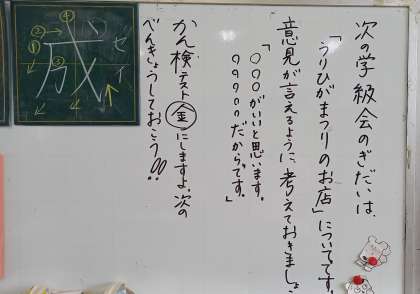 次の学級会のぎだいは、
「うりひがまつりのお店」についてです。
意見が言えるように、考えておきましょ
「○○○がいいと思います。
○○○○○だからです。」
かん検テスト㊎にしますよ。次の
べんきょうしておこう!!
成
セイ
①
②
③
④